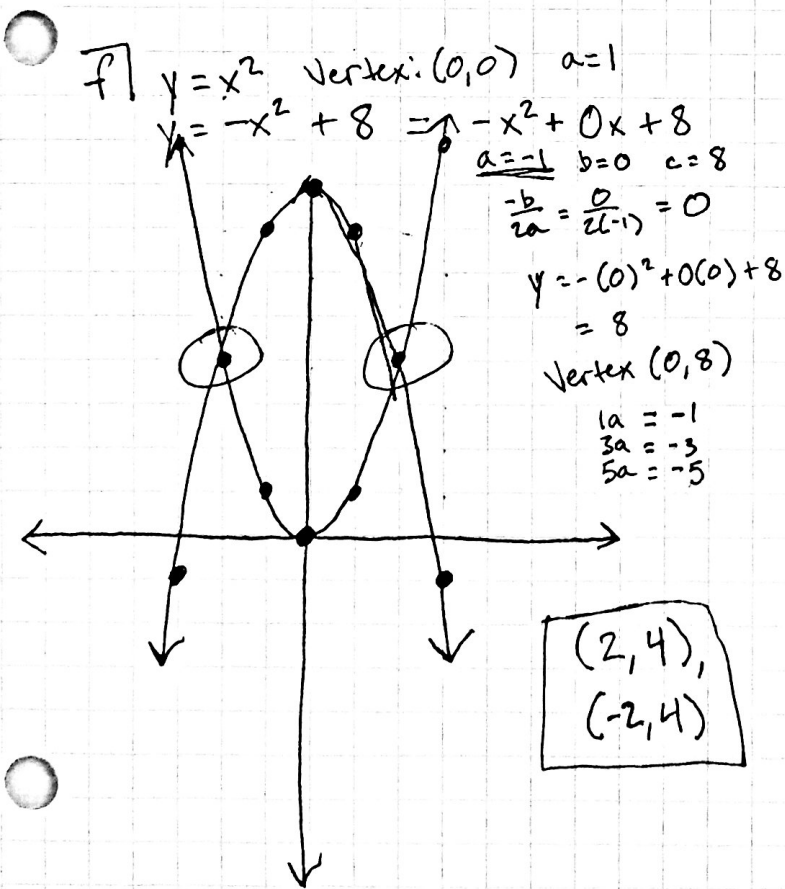 f] y = x² Vertex: (0,0) a=1
y = -x² + 8 => -x² + 0x + 8
a=-1 b=0 c=8
-b/2a = 0/2(-1) = 0
y = -(0)² + 0(0) + 8
= 8
Vertex (0,8)
1a = -1
3a = -3
5a = -5
(2,4),
(-2,4)